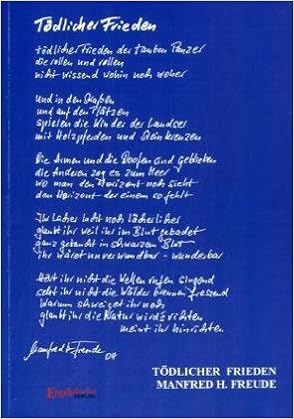 Tödlicher Frieden
tödlicher Frieden der tauben Panzer
die rollen und rollen
nicht wissend wohin noch woher
Und in den Straßen
und auf den Plätzen
spielen die Kinder der Landser
mit Holzpferden und Steinkreuzen
Die Armen und die Doofen sind geblieben
die Anderen zog es zum Meer
wo man den Horizont noch sieht
den Horizont der einem so fehlt
Ihr Lacher lacht noch lächerlicher
glaubt ihr weil ihr im Blut gebadet
ganz getaucht in schwarzem Blut
ihr wäret unverwundbar - wunderbar
Hört ihr nicht die Wellen rufen singend
seht ihr nicht die Wälder brennen fressend
Warum schweiget ihr noch
glaubt ihr die Natur wird's richten
meint ihr hinrichten
Manfred H. Freude 04
TÖDLICHER FRIEDEN
MANFRED H. FREUDE
Engelsdorfer